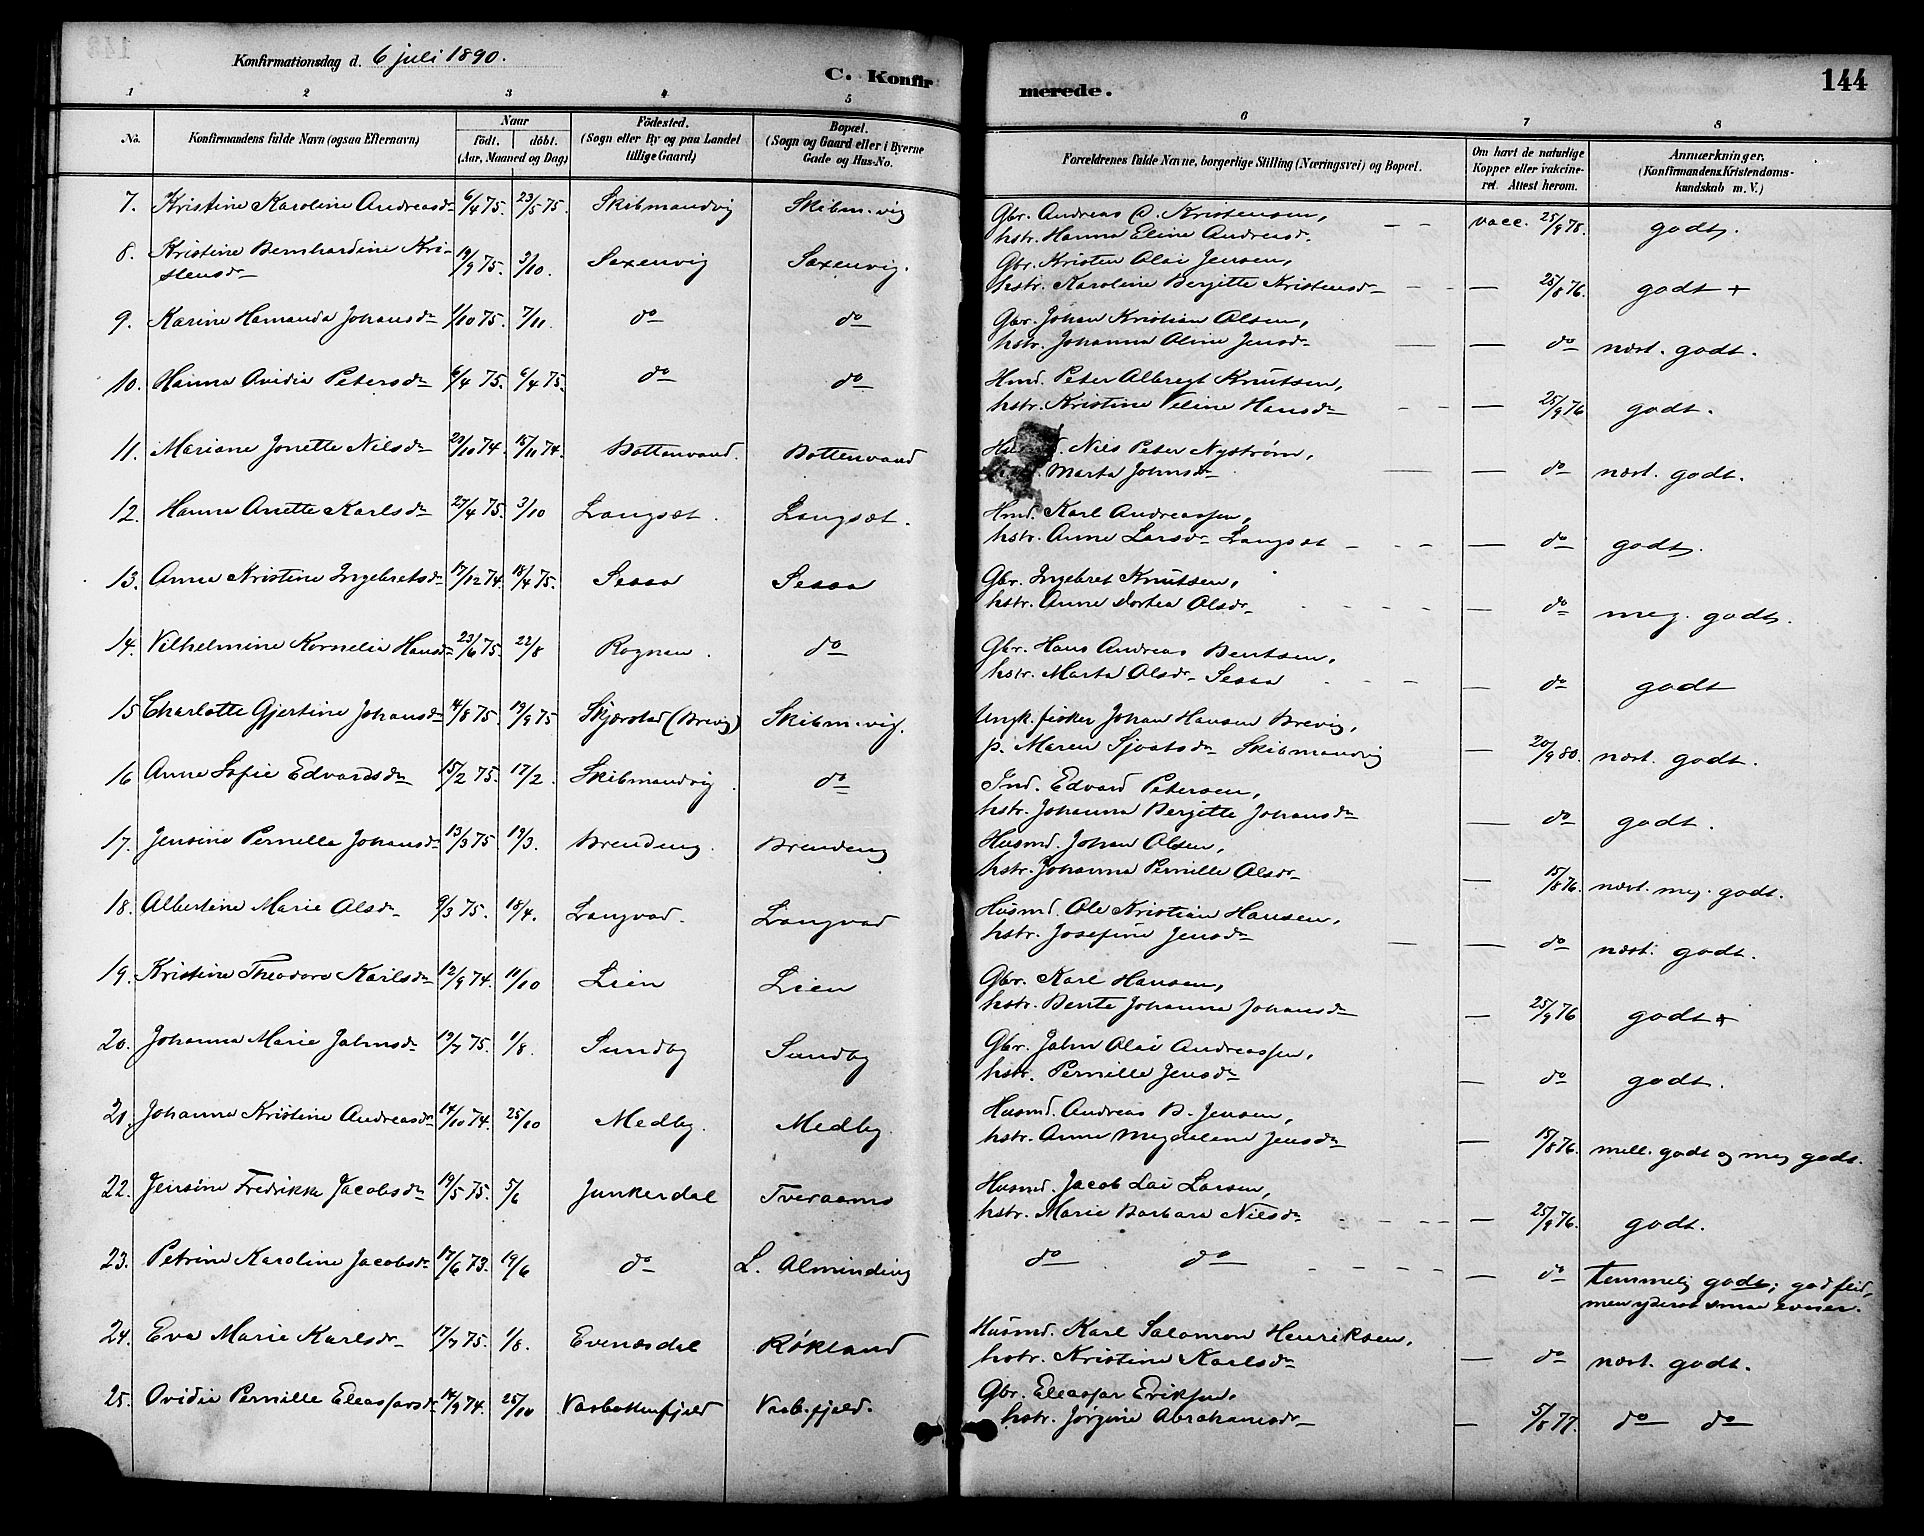 Konfirmationsdag d. 6 juli 1890.
C. Konfirmerede.
144
1 2 3 4 5 6 7 8
No. Konfirmandens fulde Navn (ogsaa Efternavn) Naar födt. döbt. (Aar, Maaned og Dag) Födested. (Sogn eller By og paa Landet tillige Gaard) Bopæl. (Sogn og Gaard eller i Byerne Gade og Hus-No.
Forældrenes fulde Navne, borgerlige Stilling (Næringsvei) og Bopæl. Om havt de naturlige Kopper eller vakcineret. Attest herom. Anmærkninger. (Konfirmandens Kristendomskundskab m. V.)
7. Kristine Karoline Andreasdr 6/4 75. 23/5 75. Skibmandvig Skibm.vig Gbr. Andreas C. Kristensen,
hstr. Hanna Eline Andreasdr. vacc. 25/9 78. godt.
8. Kristine Bernhardine Kri-
stensdr 19/9 75. 3/10. Saxenvig Saxenvig. Gbr. Kristen Olai Jensen,
hstr. Karoline Berjitte Kristensdr — 25/8 76. godt +
9. Karine Hamanda Johansdr 1/10 75. 7/11. do do Gbr. Johan Kristian Olsen,
hstr. Johanna Oline Jensdr — do næst. godt.
10. Hanna Ovidia Petersdr 6/4 75. 6/4 75. do do Hmd. Peter Albregt Knutsen,
hstr. Kristine Veline Hansdr — 25/9 76 godt.
11. Mariane Jonette Nilsdr 23/10 74. 15/11 74. Bottenvand. Bottenvand Nils Peter Nystrøm,
Marta Johnsdr — do næst. godt.
12. Hanna Anette Karlsdr 27/4 75. 3/10 Langsæt. Langsæt. Hmd. Karl Andreassen,
hstr. Anne Larsdr Langsæt — do godt.
13. Anne Kristine Ingebretsdr 17/12 74. 18/4 75. Sessa Sessa Gbr. Ingebret Knutsen,
hstr. Anne Dortea Olsdr — do meg. godt.
14. Vilhelmine Kornelia Hansdr 23/6 75. 22/8 Rognan. do Gbr. Hans Andreas Bentsen,
hstr. Marta Olsdr Sessa — do godt
15 Charlotte Gjertine Johansdr 14/8 75. 19/9 75 Skjerstad (Brevig) Skibm.vig. Ungk. fisker Johan Hansen Brevig,
p. Maren Sjvatsdr Skibmandvig — 20/9 80. næst. godt.
16 Anne Sofie Edvardsdr 15/2 75. 17/2. Skibmandvig do Ind. Edvard Petersen,
hstr. Johanna Berjette Johansdr — do godt.
17. Jensine Pernille Johansdr 13/3 75 19/3. Brendeng. Brendeng Husmd. Johan Olsen,
hstr. Johanna Pernille Olsdr — 15/8 76. næst. meg. godt.
18. Albertine Marie Olsdr 9/3 75. 18/4. Langvad. Langvad Husmd. Ole Kristian Hansen,
hstr. Josefine Jensdr — do næst. godt.
19. Kristine Theodora Karlsdr 12/9 74. 11/10 Lien Lien Gbr. Karl Hansen,
hstr. Bente Johanna Johansdr — 25/9 76 godt +
20. Johanna Marie Jahnsdr 19/7 75. 1/8. Sundby Sundby Gbr. Jahn Olai Andreassen,
hstr. Pernille Jensdr — do godt.
21. Johanna Kristine Andreasdr 14/10 74. 25/10 Medby. Medby. Husmd. Andreas B. Jensen,
hstr. Anne Magdelene Jensdr — 15/8 76. mell. godt og meg godt.
22. Jensine Fredrikke Jacobsdr 19/5 75. 5/6 Junkerdal Tveraamo Husmd. Jacob Lai Larsen,
hstr. Marie Barbara Nilsdr — 25/9 76. godt.
23. Petrine Karoline Jacobsdr 17/6 73. 19/6 do L. Alminding do do — do temmelig godt; god flid,
men yderst smaa evner.
24. Eva Marie Karlsdr 17/7 75. 1/8. Evenesdal Røkland Husmd. Karl Salomon Henriksen,
hstr. Kristine Karlsdr — do næst. godt.
25. Ovidia Pernille Eleassarsdr 14/9 74. 25/10 Vasbottenfjeld Vasb.fjeld. Gbr. Eleassar Eriksen,
hstr. Jørgine Abrahamsdr — 5/8 77. do do